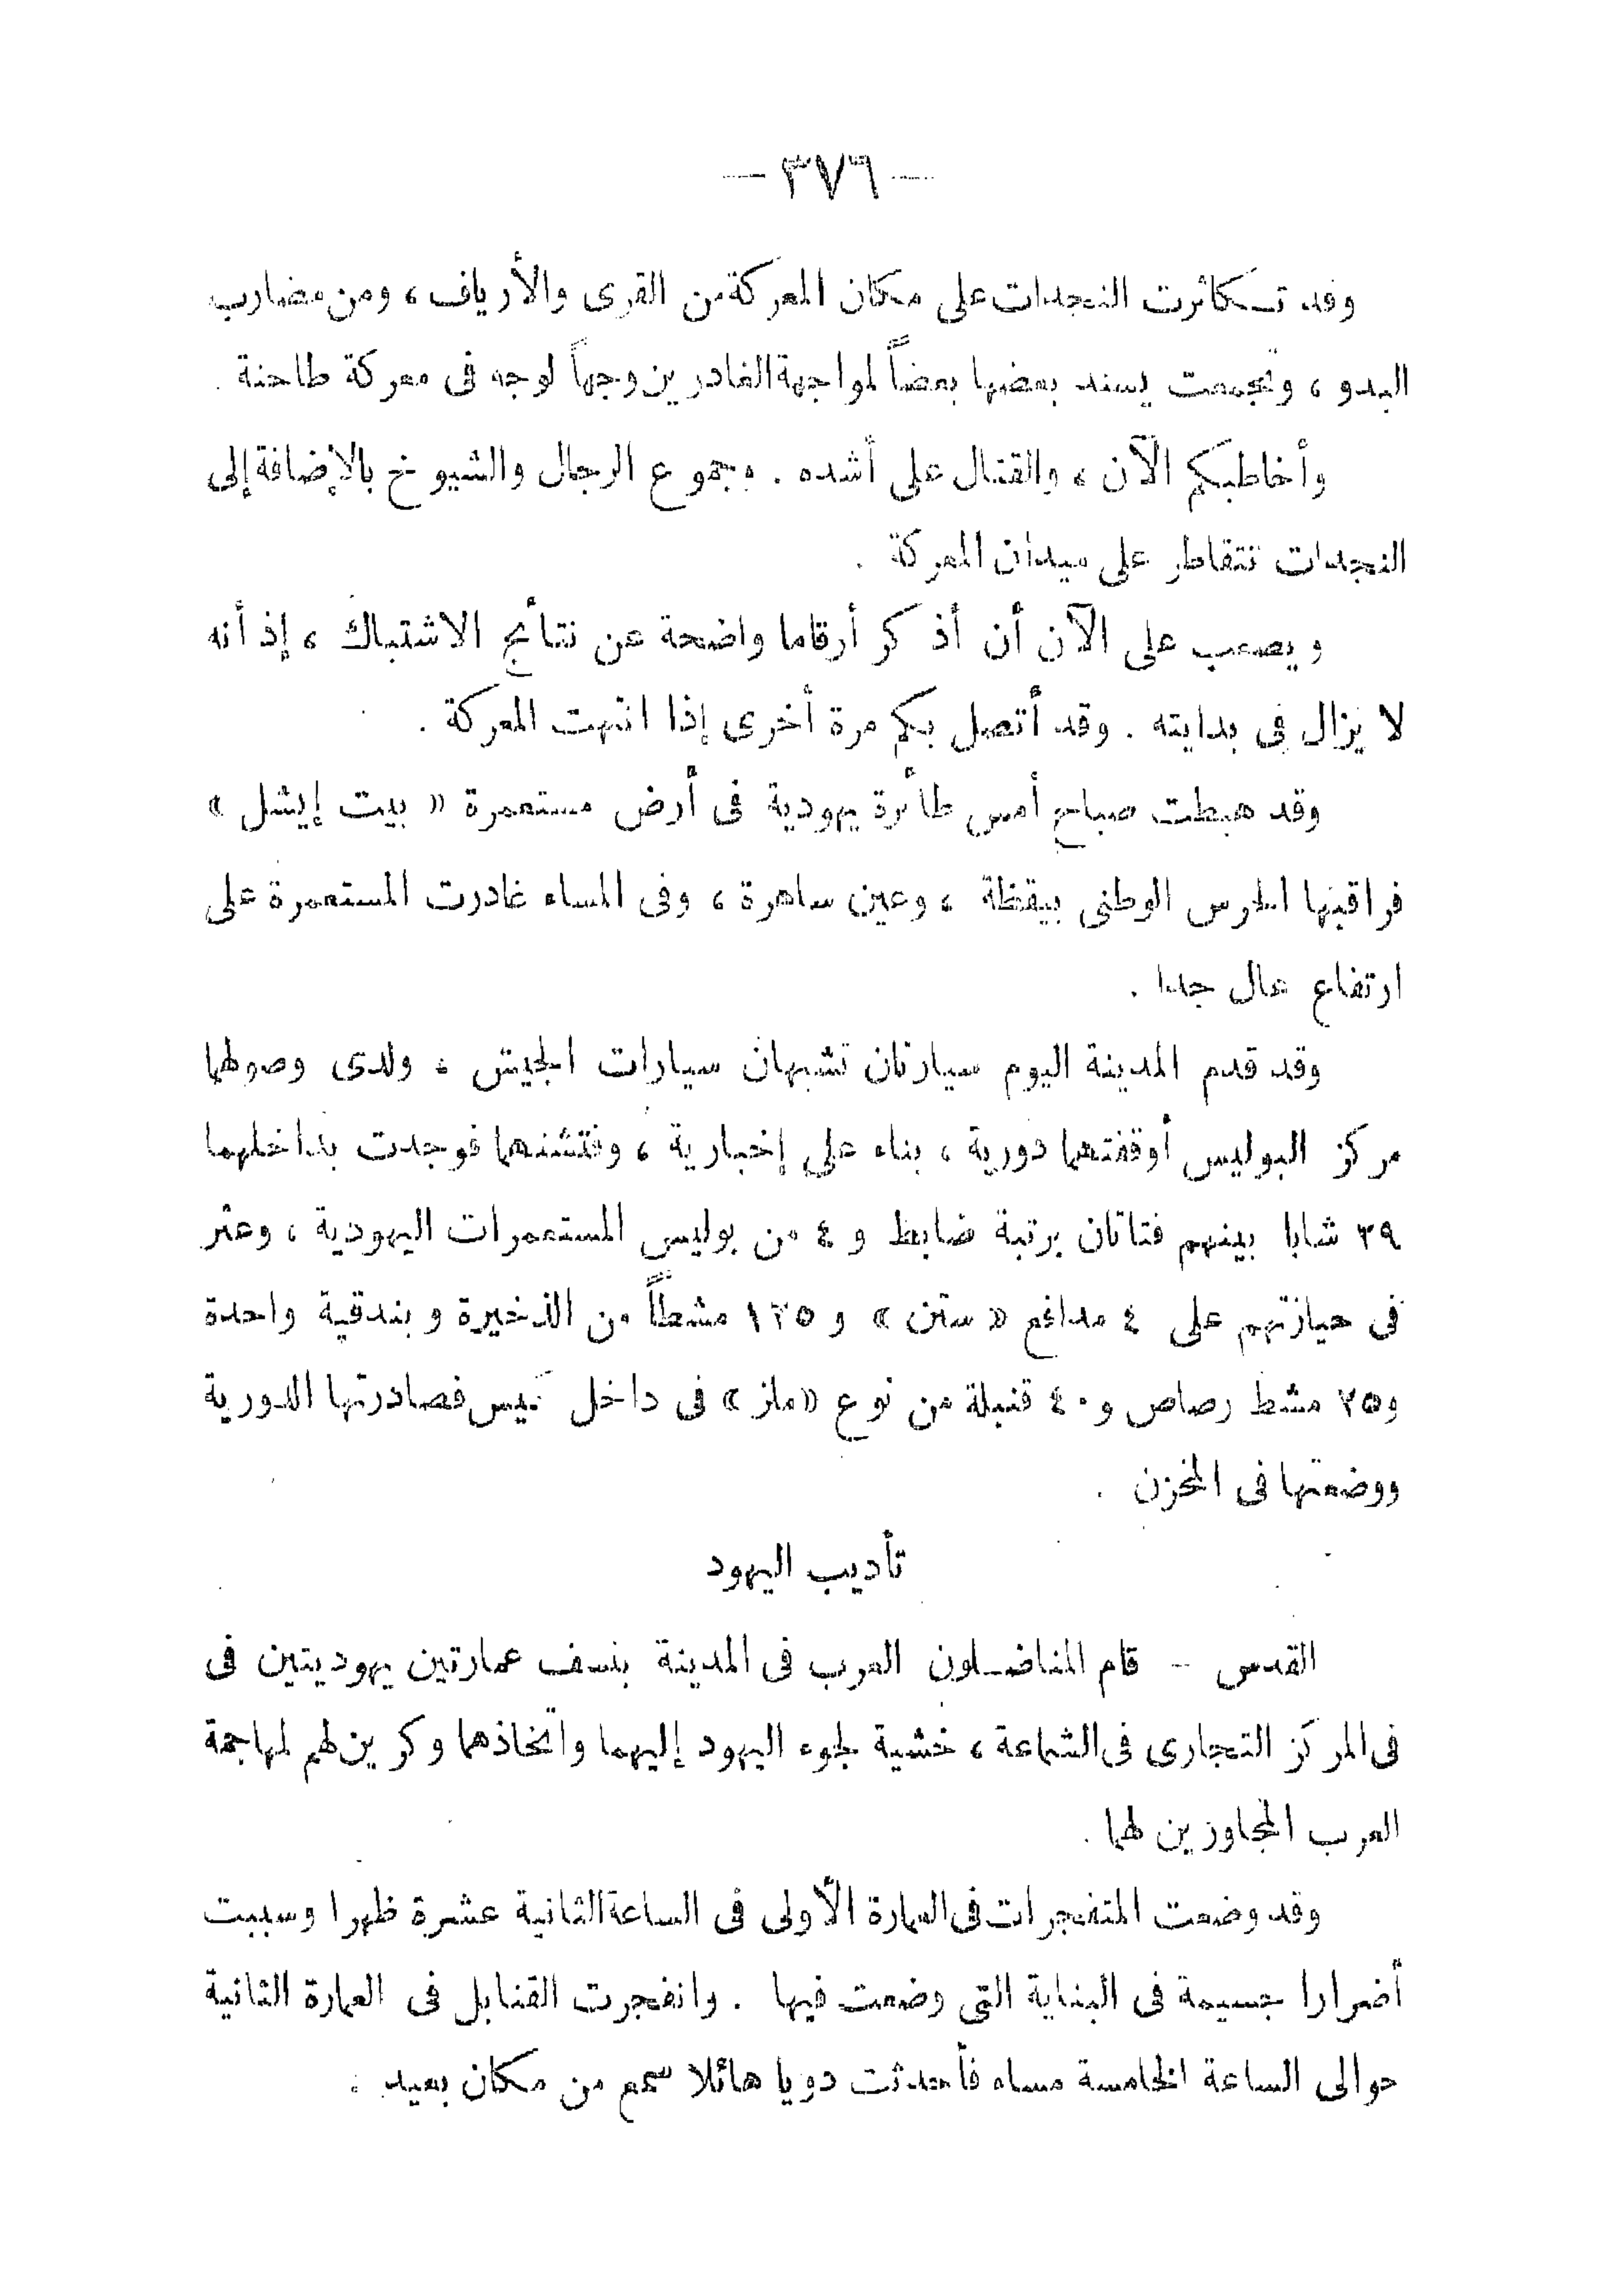 — ٣٧٦ —
وقد تكاثرت النجدات على مكان المعركة من القرى والأرياف ، ومن مضارب
البدو ، وتجمعت يسند بعضها بعضاً لمواجهة الغادرين وجهاً لوجه فى معركة طاحنة .
وأخاطبكم الآن ، والقتال على أشده . وجموع الرجال والشيوخ بالإضافة إلى
النجدات تتقاطر على ميدان المعركة .
ويصعب على الآن أن أذكر أرقاما واضحة عن نتائج الاشتباك ، إذ أنه
لا يزال فى بدايته . وقد أتصل بكم مرة أخرى إذا انتهت المعركة .
وقد هبطت صباح أمس طائرة يهودية فى أرض مستعمرة « بيت إيشل »
فراقبها الحرس الوطنى بيقظة ، وعين ساهرة ، وفى المساء غادرت المستعمرة على
ارتفاع عال جدا .
وقد قدم المدينة اليوم سيارتان تشبهان سيارات الجيش ، ولدى وصولهما
مركز البوليس أوقفتهما دورية ، بناء على إخبارية ، وفتشتهما فوجدت بداخلهما
٣٩ شابا بينهم فتاتان برتبة ضابط و ٤ من بوليس المستعمرات اليهودية ، وعثر
فى حيازتهم على ٤ مدافع « ستن » و ١٢٥ مشطاً من الذخيرة وبندقية واحدة
و٢٥ مشط رصاص و٤٠ قنبلة من نوع « ملز » فى داخل كيس فصادرتها الدورية
ووضعتها فى المخزن .
تأديب اليهود
القدس – قام المناضلون العرب فى المدينة بنسف عمارتين يهوديتين فى
فى المركز التجارى فى الشماعة ، خشية لجوء اليهود إليهما واتخاذهما وكرين لهم لمهاجمة
العرب المجاوزين لهما .
وقد وضعت المتفجرات فى العمارة الأولى فى الساعة الثانية عشرة ظهرا وسببت
أضرارا جسيمة فى البناية التى وضعت فيها . وانفجرت القنابل فى العمارة الثانية
حوالى الساعة الخامسة مساء فأحدثت دويا هائلا سمع من مكان بعيد .